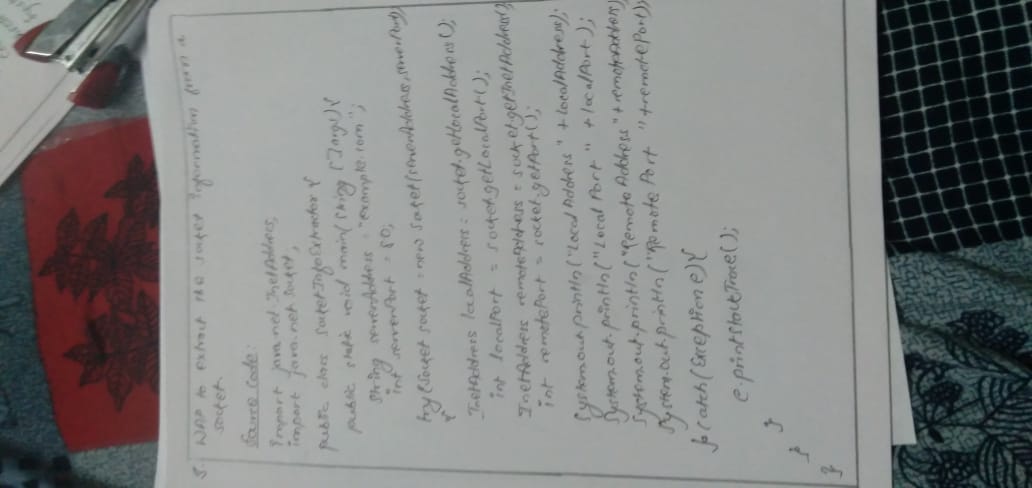 5. WAP to extract the socket information from a
socket.
Source code:
import java.net.InetAddress;
import java.net Socket;
public class SocketInfoExtractor {
public static void main(String []args){
String serverAddress = "example.com";
int serverPort = 80;
try(Socket socket = new Socket(serverAddress, serverPort)
{
InetAddress localAddress = socket.getLocalAddress();
int localPort = socket.getLocalPort();
InetAddress remoteAddress = socket.getInetAddress();
int remotePort = socket.getPort();
System.out.println("Local Address" + localAddress);
System.out.println("Local Port " + localPort);
System.out.println("Remote Address" + remoteAddress)
System.out.println("Remote Port " + remotePort);
} catch (Exception e){
e.printStackTrace();
}
}
}